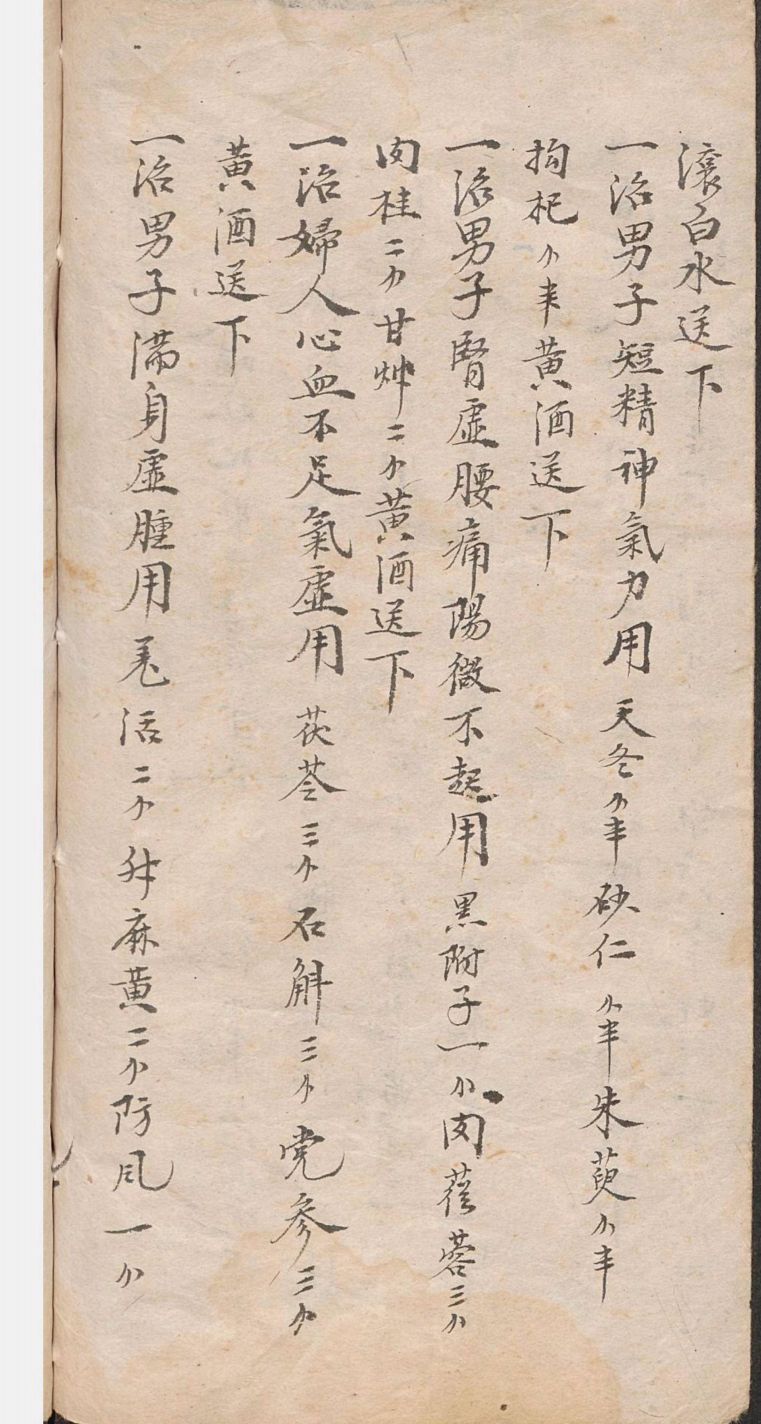 滾白水送下
一治男子短精神氣力用天冬分半砂仁分半朱萸分半
拘杞分半黃酒送下
一治男子腎虛腰痛陽微不起用黑附子一分肉蓯蓉三分
肉桂二分甘艸二分黃酒送下
一治婦人心血不足氣虛用茯苓三分石斛三分党参三分
黃酒送下
一治男子滿身虛腫用羌活二分升麻黃二分防風一分